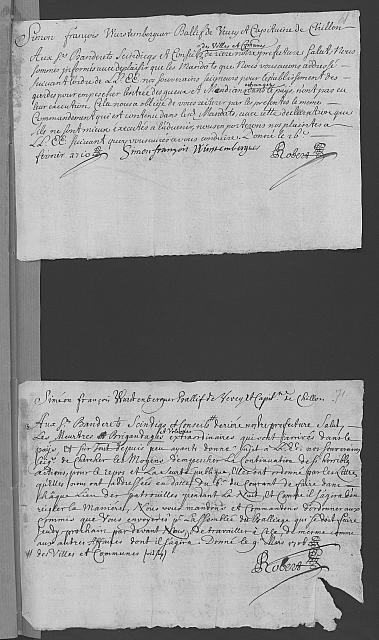 Simon françois Wurstemberguer Ballif de Vevey et Capitaine de Chillon
des Villes et Communes
Aux Srs Banderets Scindiqs et Conseils de riere notre prefecture Salut, Nous
sommes informés avec deplaisir que les Mandats que Nous vous avons addressé
suivant l'ordre de LL. EE. nos souverains seigneurs pour l'établissement des
gardes pour empecher l'entrée des gueux et Mendians dans le pays, n'ont pas eu
leur execution. Cela nous a obligé de vous reiterer par les presentes le meme
Commandement qui est contenu dans les d. Mandats, avec cette declaration que
s'ils ne sont mieux executés à l'advenir, nous en porterons nos plaintes à
LL. EE. suivant quoy vous aurés à vous conduire. Donné le 16e
fevrier 1710
Simon françois Wurstemberguer
Robert
71
Simeon françois Wurstenberger Ballif de Vevey et Capitn de Chillon.
Aux Srs Banderets Scindiqs et Conseils de riere notre prefecture Salut,
Les Meurtres et Brigandages extraordinaires qui sont arrivés dans le
pays, et sur tout depuis peu ayant donné sujet à LL. EE. nos souverains
seigrs de chercher les Moyens d'empescher la Continuation de si horribles
actions, pour le repos et la sureté publique, Elles ont ordonné par les lettres
qu'elles nous ont addressées en datte du 6e du Courant de faire dans
chaque Lieu des patrouilles pendant la Nuit, et Comme il s'agira d'en
reigler la Maniere, Nous vous mandons et Commandons d'ordonner aux
Commis que Vous envoyerés à l'assemblée du Balliage qui se doit faire
Jeudy prochain par devant Nous, de travailler à Cela, de mesme comme
aux autres affaires dont il s'agira. Donné le 9e Mars 1710
des Villes et Communes
Robert